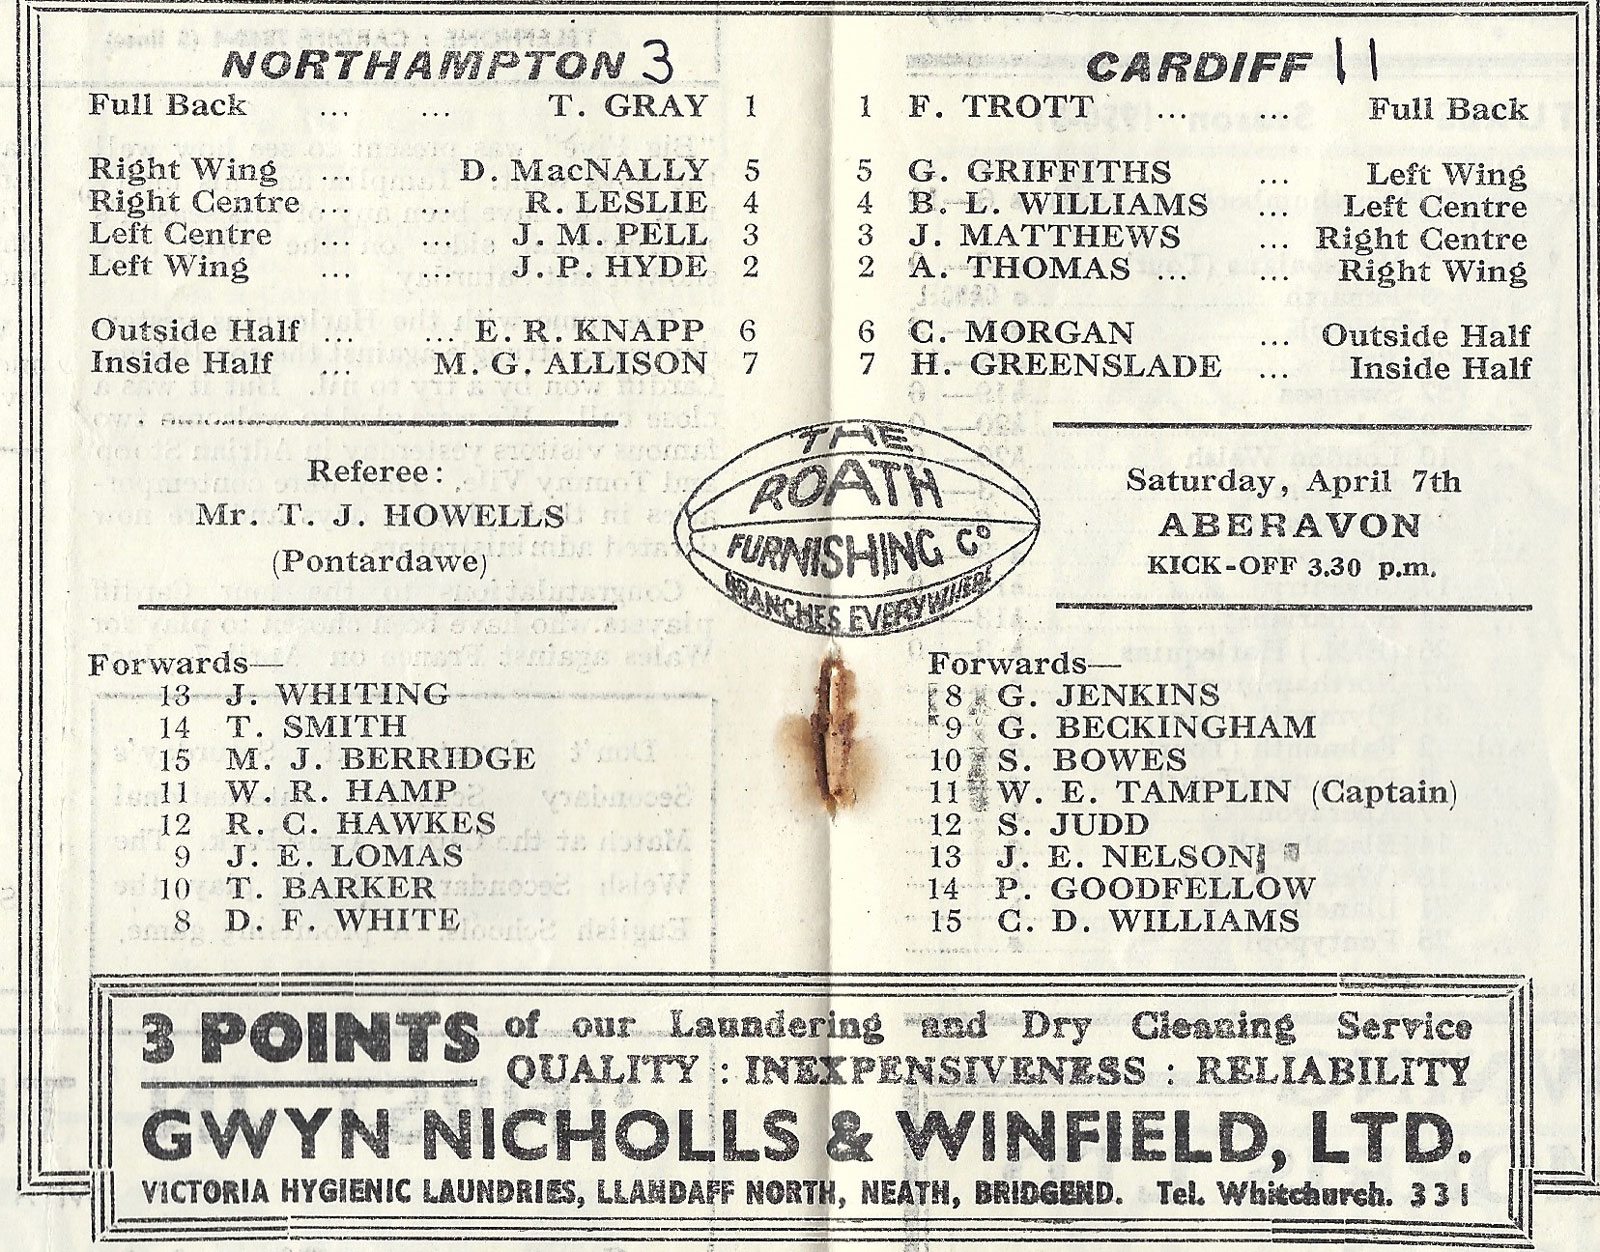 NORTHAMPTON 3
Full Back ... ... T. GRAY 1
Right Wing ... D. MacNALLY 5
Right Centre ... R. LESLIE 4
Left Centre ... ... J. M. PELL 3
Left Wing ... ... J. P. HYDE 2
Outside Half ... ... E. R. KNAPP 6
Inside Half ... M. G. ALLISON 7
Referee:
Mr. T. J. HOWELLS
(Pontardawe)
Forwards—
13 J. WHITING
14 T. SMITH
15 M. J. BERRIDGE
11 W. R. HAMP
12 R. C. HAWKES
9 J. E. LOMAS
10 T. BARKER
8 D. F. WHITE
THE
ROATH
FURNISHING Co
BRANCHES EVERYWHERE
CARDIFF 11
1 F. TROTT ... ... Full Back
5 G. GRIFFITHS ... Left Wing
4 B. L. WILLIAMS ... Left Centre
3 J. MATTHEWS ... Right Centre
2 A. THOMAS ... ... Right Wing
6 C. MORGAN ... Outside Half
7 H. GREENSLADE ... Inside Half
Saturday, April 7th
ABERAVON
KICK-OFF 3.30 p.m.
Forwards—
8 G. JENKINS
9 G. BECKINGHAM
10 S. BOWES
11 W. E. TAMPLIN (Captain)
12 S. JUDD
13 J. E. NELSON
14 P. GOODFELLOW
15 C. D. WILLIAMS
3 POINTS of our Laundering and Dry Cleaning Service
QUALITY : INEXPENSIVENESS : RELIABILITY
GWYN NICHOLLS & WINFIELD, LTD.
VICTORIA HYGIENIC LAUNDRIES, LLANDAFF NORTH, NEATH, BRIDGEND. Tel. Whitchurch. 331